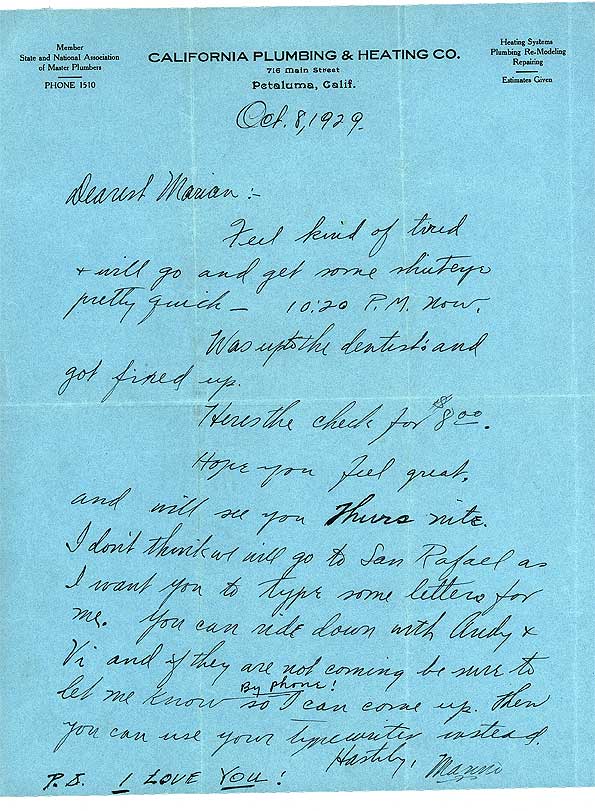 Member
State and National Association
of Master Plumbers
PHONE 1510
CALIFORNIA PLUMBING & HEATING CO.
716 Main Street
Petaluma, Calif.
Heating Systems
Plumbing Re-Modeling
Repairing
Estimates Given
Oct. 8, 1929.
Dearest Marian:-
Feel kind of tired
+ will go and get some shuteye
pretty quick — 10:20 P.M. now.
Was up to the dentist's and
got fixed up.
Heres the check for $8.00.
Hope you feel great.
and will see you Thurs nite.
I don't think we will go to San Rafael as
I want you to type some letters for
me. You can ride down with Andy +
Vi and if they are not coming be sure to
let me know By phone! so I can come up. Then
you can use your typewriter instead.
Hastily,
P.S. I LOVE YOU!